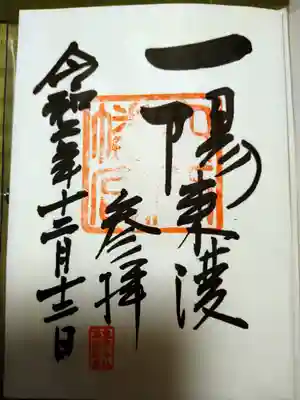 一陽来復
参拝
令和七年十二月十二日